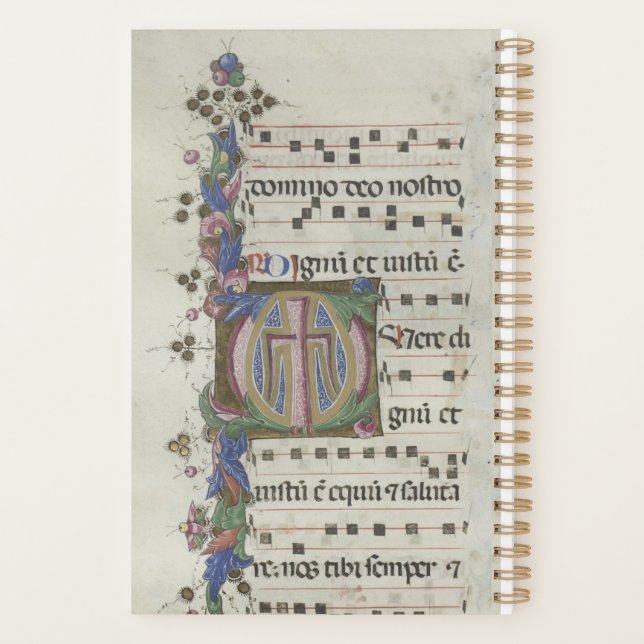 domino deo nostro
R Dignũ et iustũ ē
Vere di
gnũ et
iustũ ē equũ ⁊ saluta
re: nos tibi semper ⁊